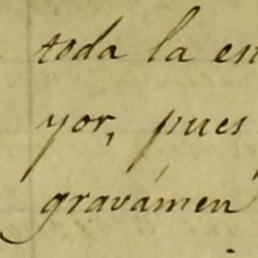 toda la en
yor, pues
gravámen